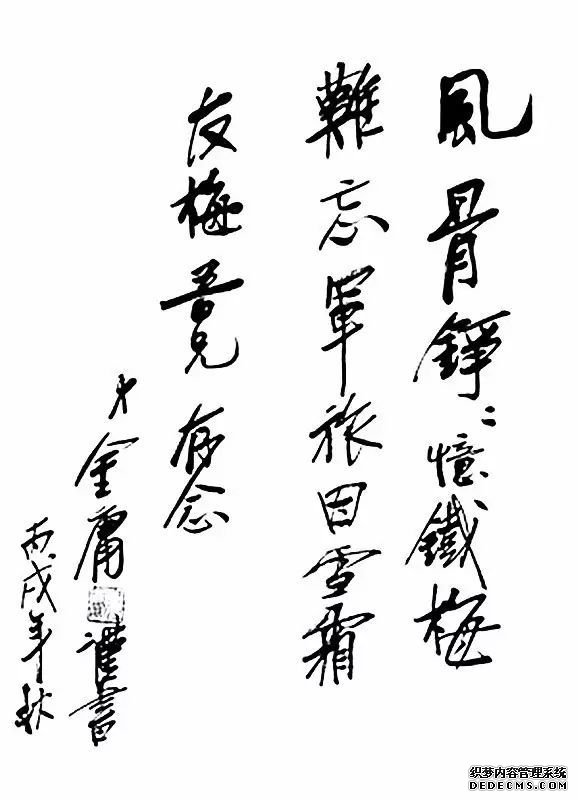 風骨錚〻憶鐵梅
難忘軍旅因雪霜
友梅吾兄存念
弟金庸謹書
丙戌年秋
织梦内容管理系统
DEDECMS.COM